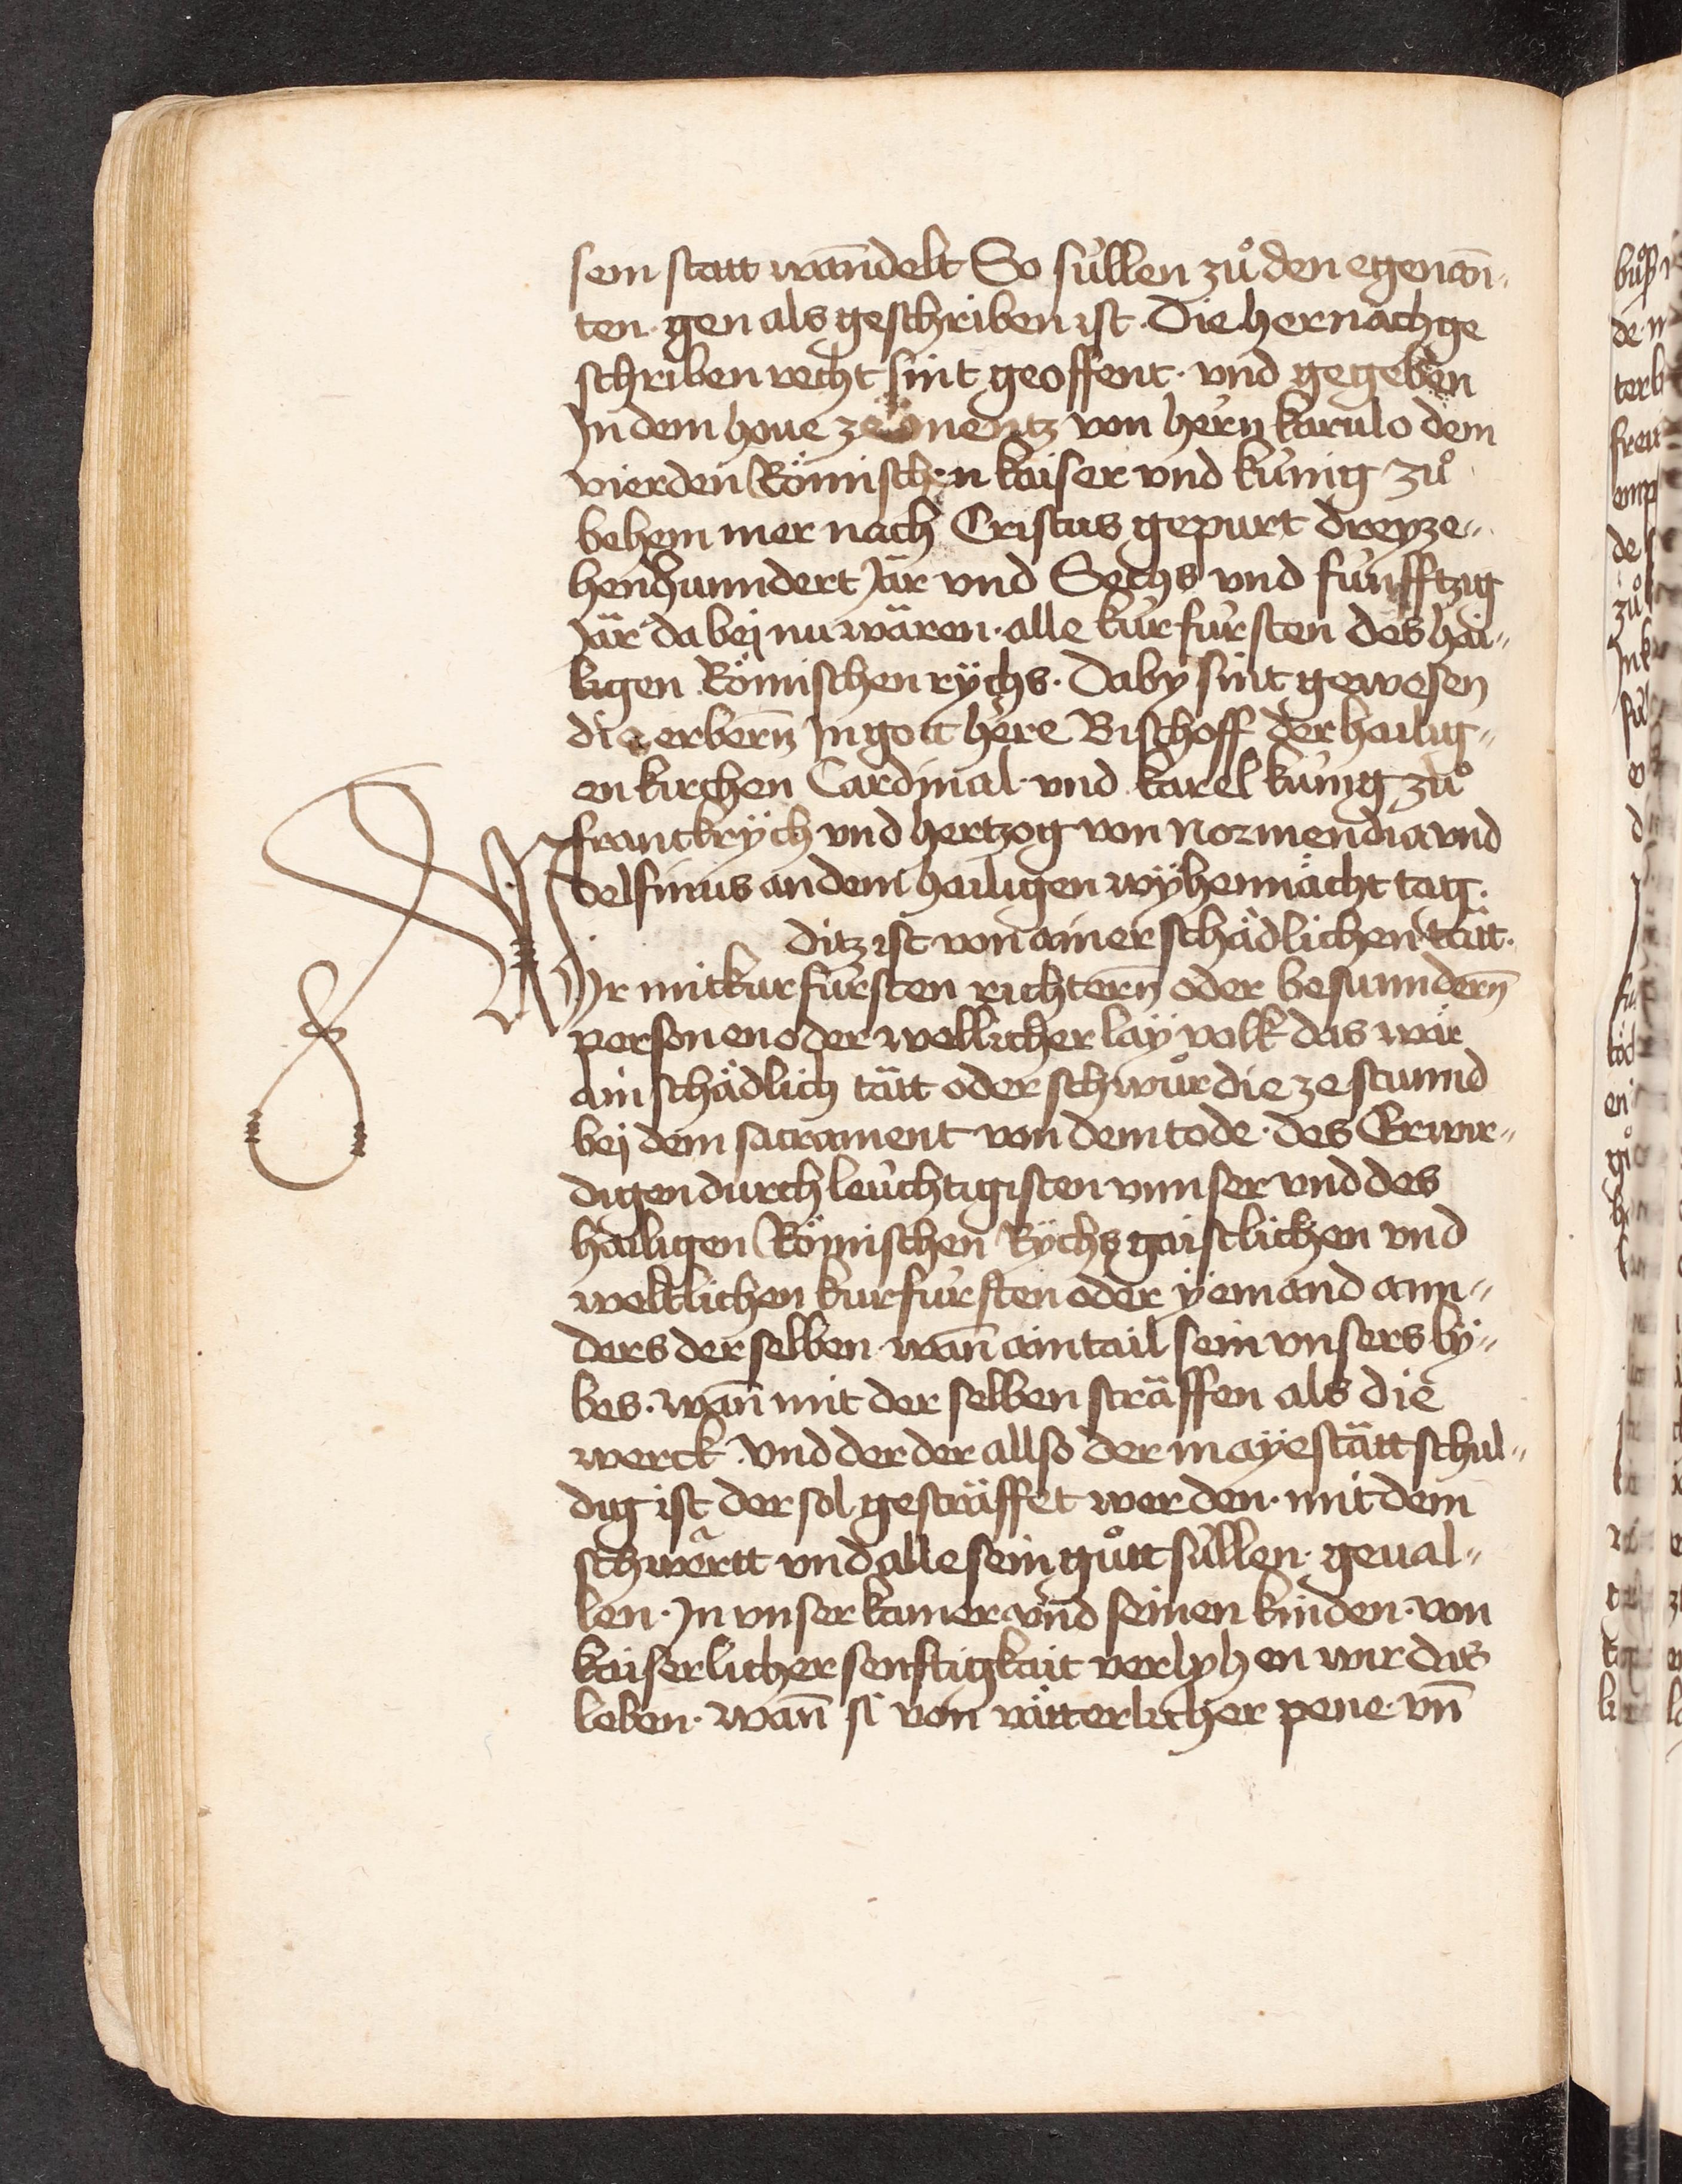 sein statt wandelt So süllen zů den egenan̄„
ten · gen als geschriben ist · Die hernach ge
schriben recht sint geoffent · vnd gegeben
In dem houe ze mentz von hern karulo dem
vierden Römischen kaiser vnd künig zů
behem mer nach Cristus gepurt dreyze„
henhunndert Jar vnd Sechs vnd fünfftzig
Jär da bej nu wären · alle kurfürsten des hai„
ligen Römischen rÿchs · Daby sint gewesen
die erbern̄ In gott here Bischoff der hailig„
en kirchen Cardinal · vnd karel künig zů
franckrÿch vnd hertzog von Normendia vnd
delfinus an dem hailigen wÿhennächt tag ·
ditz ist von ainer schädlichen tätt ·
Wyr mitkurfürsten richtern̄ oder besunndern̄
personen oder wellicher lay volk das wär
ain schädlich tätt oder schwůr die ze stunnd
bej dem sacrament von dem tode · des Erwir„
digen durchleuchtigisten vnnser vnd des
hailigen Römischen Rÿchs gaistlichen vnd
weltlichen kurfürsten oder yemand ann„
ders der selben · wan̄ ain tail sein vnsers lÿ„
bes · wan̄ mit der selben sträffen als die
werck · Vnd der der allso der mayestätt schul„
dig ist der sol gesträffet werden · mit dem
schwärtt vnd alle sein gůtt süllen · geual„
len · In vnser kamer vnd seinen kinden · von
kaiserlicher senftigkait verlyhen wir das
leben · wan̄ si von vätterlicher pene · vn̄